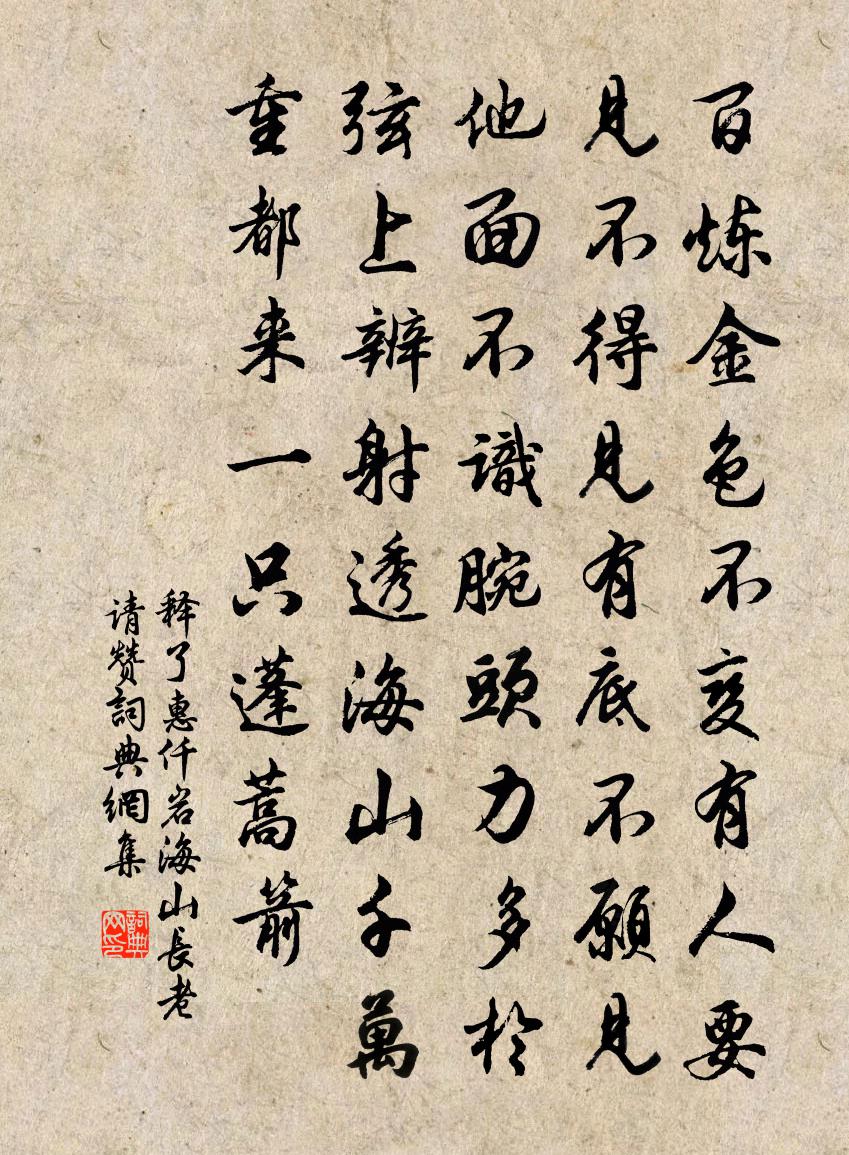 百炼金色不变有人要
见不得见有底不愿见
他面不識腕頭力多於
弦上辨射透海山千萬
重都来一只蓬蒿箭
释了惠仟岩海山長老
请赞詞典網集
詞典网印